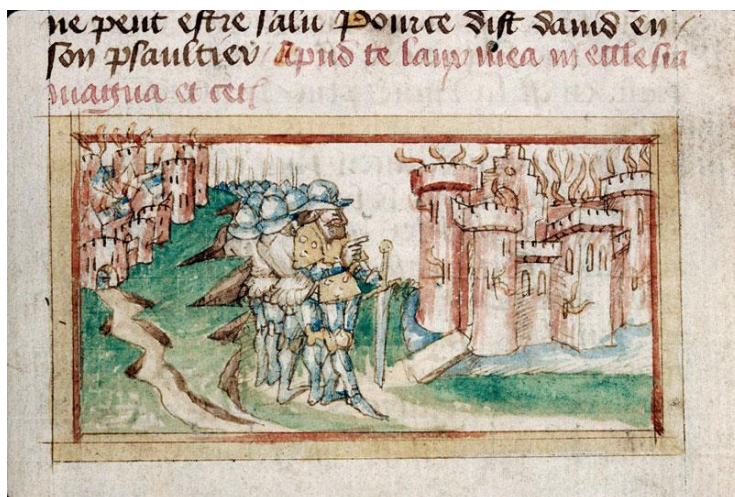 ne peut estre salu Pource dist dauid en
son psaultier / Apud te laux mea in ecclesia
magna et cet